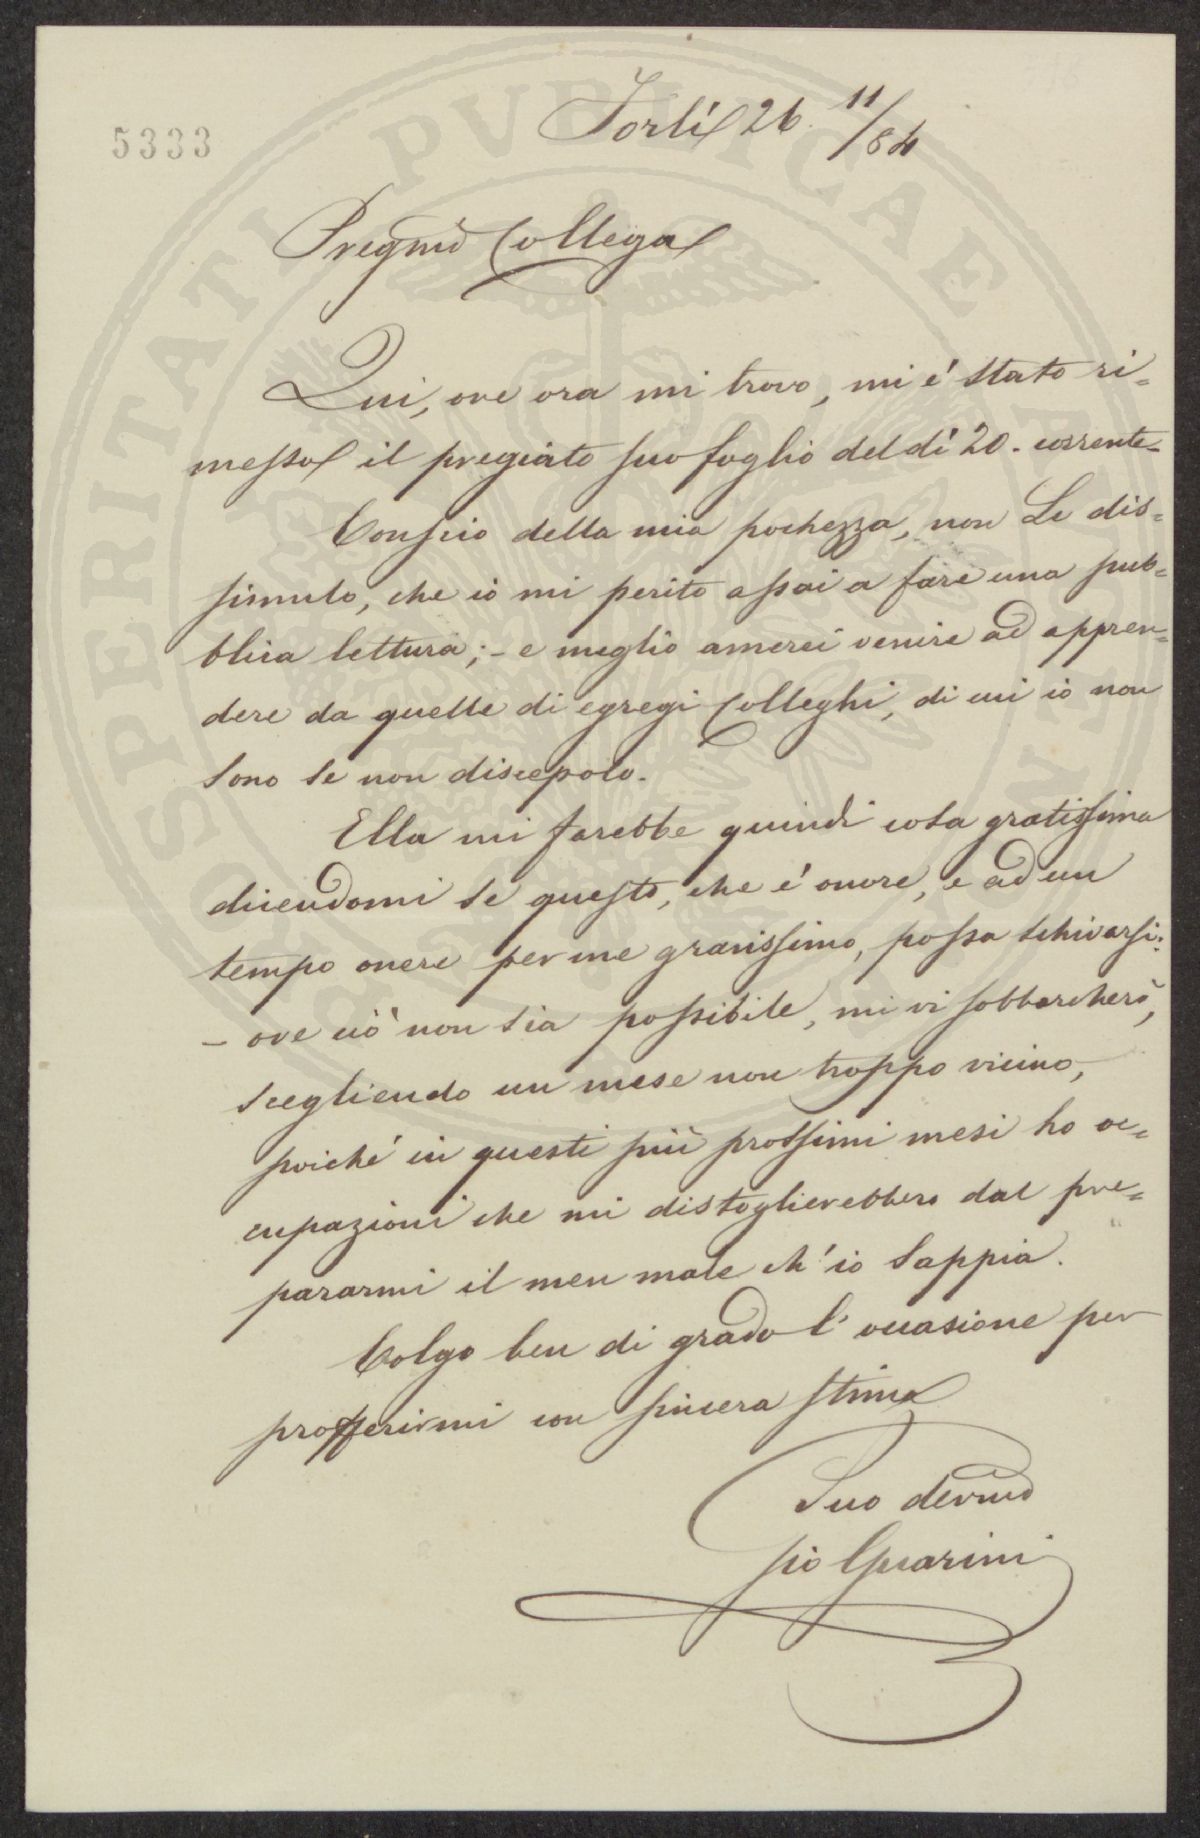 5333
Forlì 26 11/84
Pregmo Collega
Qui, ove ora mi trovo, mi é stato ri=
messo il pregiato suo foglio del dì 20. corrente.
Conscio della mia pochezza, non Le dis=
simulo, che io mi perito assai a fare una pub=
blica lettura; - e meglio amerei venire ad appren=
dere da quelle di egregi Colleghi, di cui io non
sono se non discepolo.
Ella mi farebbe quindi cosa gratissima
dicendomi se questo, che é onore, e ad un
tempo onere per me gravissimo, possa schivarsi:
- ove ciò non sia possibile, mi vi sobbarcherò,
scegliendo un mese non troppo vicino,
poiché in questi più prossimi mesi ho oc=
cupazioni che mi distoglierebbero dal pre=
pararmi il men male ch'io sappia.
Colgo ben di grado l'occasione per
profferirmi con sincera stima
Suo devmo
Pio Guarini
PROSPERITATI PVBLICAE